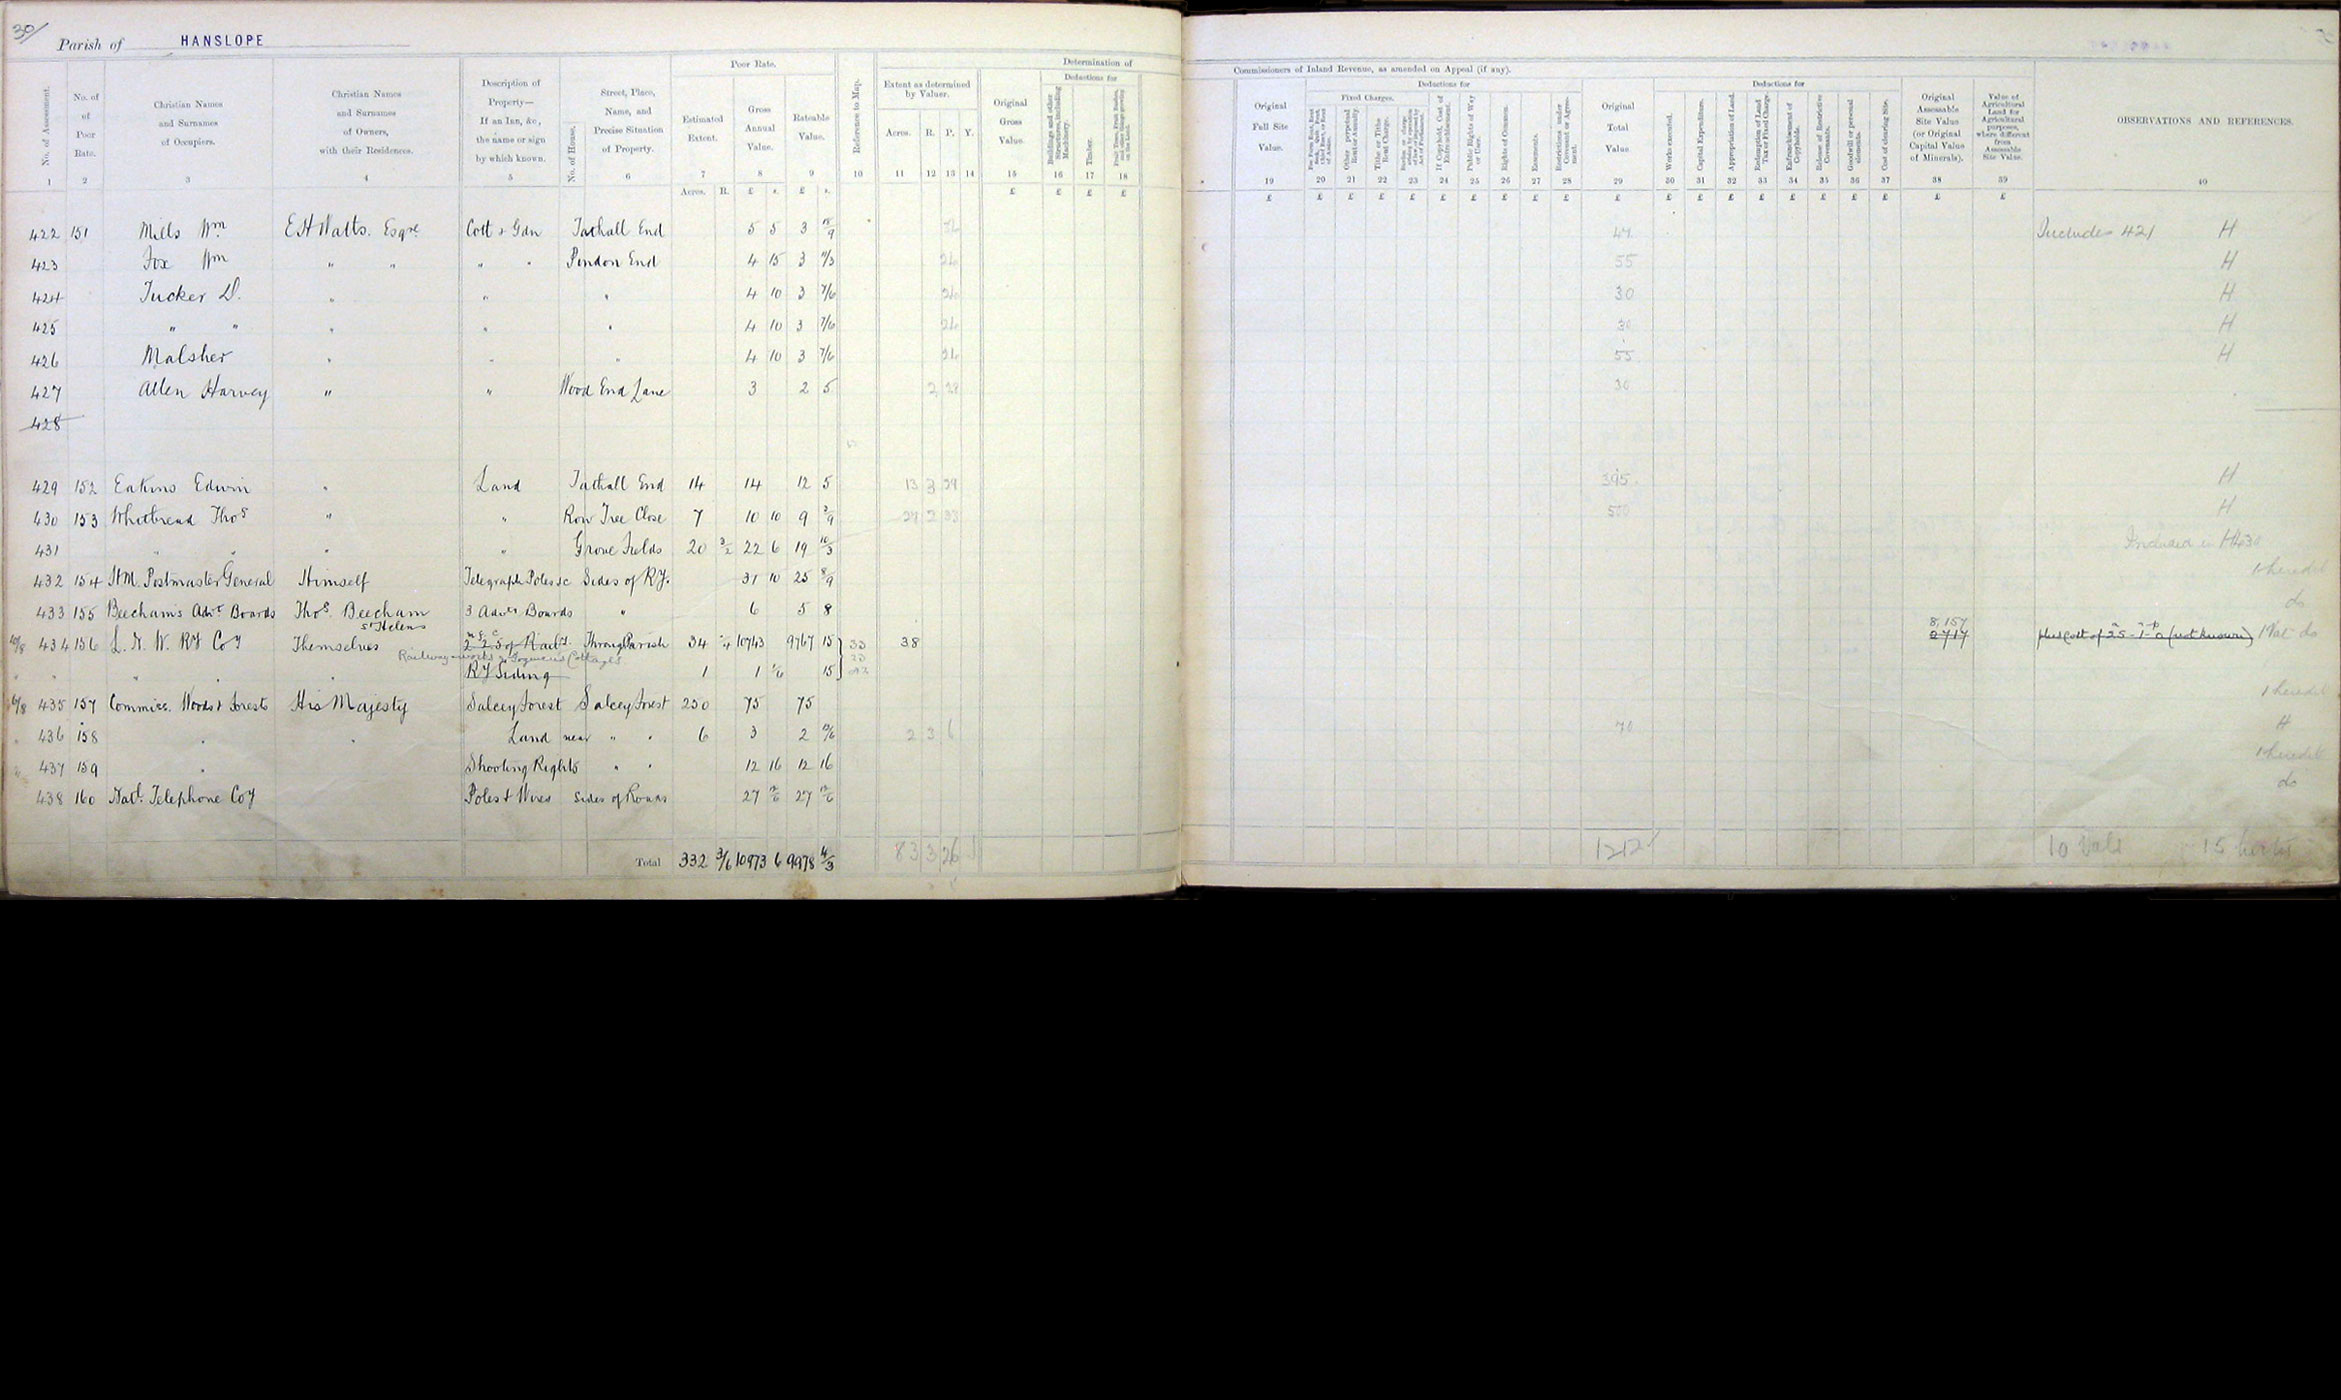 30/
Parish of HANSLOPE
Poor Rate. Determination of
Commissioners of Inland Revenue, as amended on Appeal (if any).
No. of Assessment. 1
No. of Poor Rate. 2
Christian Names and Surnames of Occupiers. 3
Christian Names and Surnames of Owners, with their Residences. 4
Description of Property— If an Inn, &c., the name or sign by which known. 5
No. of House.
Street, Place, Name, and Precise Situation of Property. 6
Estimated Extent. 7 Acres. R.
Gross Annual Value. 8 £ s.
Rateable Value. 9 £ s.
Reference to Map. 10
Extent as determined by Valuer.
Acres. R. P. Y. 11 12 13 14
Original Gross Value. 15 £
Deductions for
Buildings and other Structures, including Machinery. 16 £
Timber. 17 £
Fruit Trees, Fruit Bushes, and other things growing on the Land. 18 £
Original Full Site Value. 19 £
Deductions for
Fixed Charges.
20 £
Other perpetual Rent or Annuity. 21 £
Tithe or Tithe Rent Charge. 22 £
23 £
If Copyhold, Cost of Enfranchisement. 24 £
Public Rights of Way or User. 25 £
Rights of Common. 26 £
Easements. 27 £
Restrictions under Covenant or Agreement. 28 £
Original Total Value 29 £
Deductions for
Works executed. 30 £
Capital Expenditure. 31 £
Appropriation of Land. 32 £
Redemption of Land Tax or Fixed Charge. 33 £
Enfranchisement of Copyholds. 34 £
Release of Restrictive Covenants. 35 £
Goodwill or personal elements. 36 £
Cost of clearing Site. 37 £
Original Assessable Site Value (or Original Capital Value of Minerals). 38 £
Value of Agricultural Land for Agricultural purposes, where different from Assessable Site Value. 39 £
OBSERVATIONS AND REFERENCES. 40
422 151 Mills Wm E H Watts. Esqre Cott & Gdn Tathall End 5 5 3 18/9 47 Includes 421 H
423 Fox Wm " " " " Pindon End 4 15 3 11/3 26 55 H
424 Tucker D. " " " 4 10 3 7/6 26 30 H
425 " " " " " 4 10 3 7/6 26 30 H
426 Malsher " " " 4 10 3 7/6 26 55 H
427 Allen Harvey " " Wood End Lane 3 2 5 2 29 30
428
429 152 Eakins Edwin " Land Tathall End 14 14 12 5 13 3 39 395 H
430 153 Whitbread Thos " " Row Tree Close 7 10 10 9 3/9 500 H
431 " " " " Grove Fields 20 3/2 22 6 19 10/3 Included in H430
432 154 H.M. Postmaster General Himself Telegraph Poles &c Sides of Ry. 31 10 25 8/9 1 heredit
433 155 Beechams Advt Boards Thos. Beecham St Helens 3 Advts Boards " 6 5 8 do
434 156 L. N. W. Ry Coy Themselves 2 2 5 of Raily. Through Parish 34 10743 9767 15 33 38 8,157 2717 plus cost of (not known) 1 Val do
Railway works & Cottages
" " " " Ry Siding 1 1 15
435 157 Commiss. Woods & Forests His Majesty Salcey Forest Salcey Forest 250 75 75 1 heredit
436 158 " " Land near " " 6 3 2 2 3 6 70 H
437 159 " Shooting Rights " " 12 16 12 16 1 heredit
438 160 Natl. Telephone Coy Poles & Wires Sides of Roads 27 27 do
Total 332 3/6 10973 6 9978 4/3 83 3 26 1212 10 Vals 15 herts